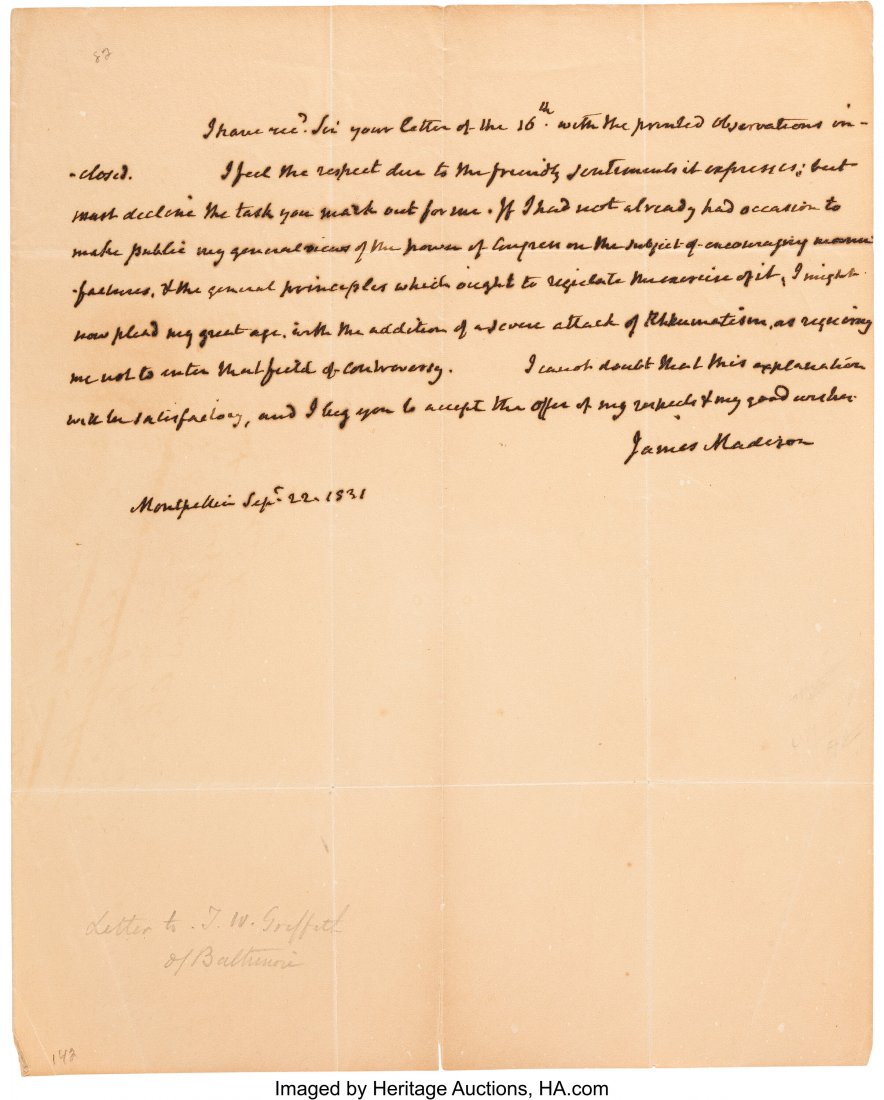 82
I have recd. Sir your letter of the 16th. with the printed Observations in-
-closed. I feel the respect due to the friendly sentiments it expresses; but
must decline the task you mark out for me. If I had not already had occasion to
make public my general views of the power of Congress on the subject of encouraging manu-
-factures, & the general principles which ought to regulate the exercise of it, I might
now plead my great age, with the addition of a severe attack of Rheumatism, as requiring
me not to enter that field of controversy. I cannot doubt that this explanation
will be satisfactory, and I beg you to accept the offer of my respects & my good wishes.
James Madison
Montpellier Sepr. 22. 1831
Letter to T. W. Griffith
of Baltimore
142
Imaged by Heritage Auctions, HA.com